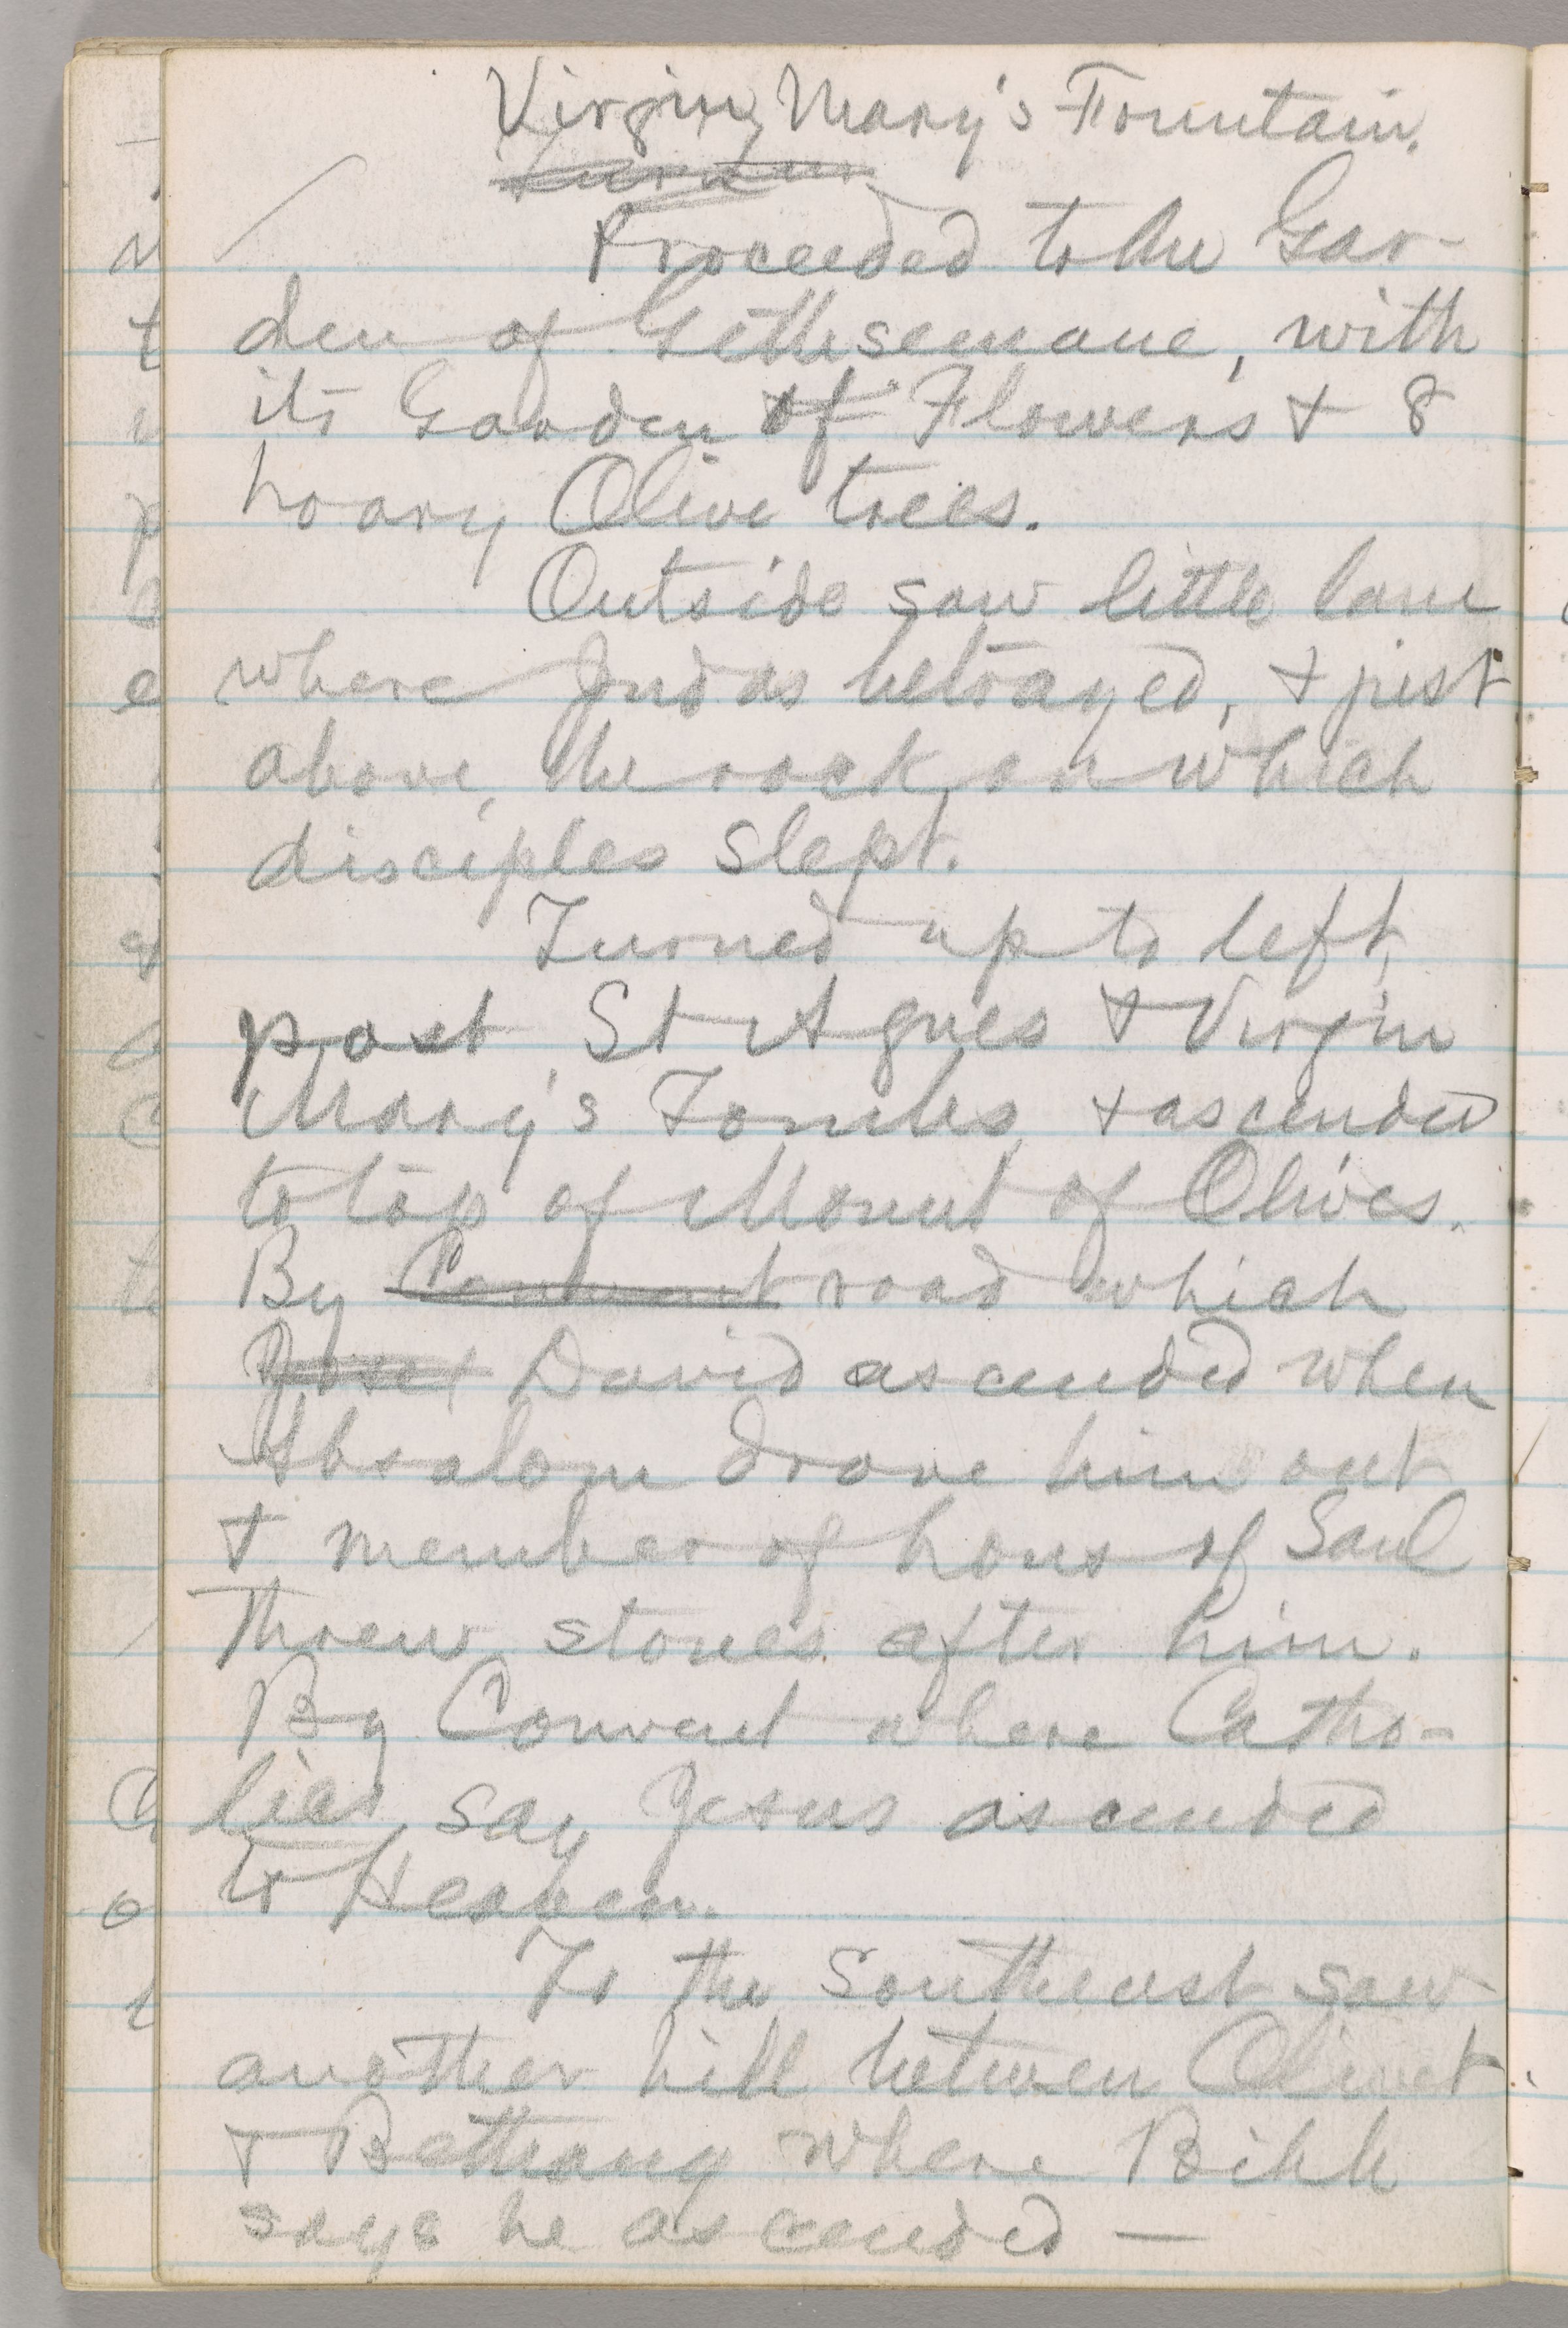 Virgin Mary's Fountain.
Proceeded to the Gar-
den of Gethsemane, with
its Garden of Flowers + 8
hoary Olive trees.
Outside saw little lane
where Judas betrayed, + just
above, the rock on which
disciples slept.
Turned up to left,
past St Agnes + Virgin
Mary's Tombs, + ascended
to top of Mount of Olives.
By Convent road which
David ascended when
Absalom drove him out
+ member of hous of Saul
threw stones after him.
By Convent where Catho-
lics say Jesus ascended
to Heaven.
To the Southeast saw
another hill between Olivet
+ Bethany where Bible
says he ascended —